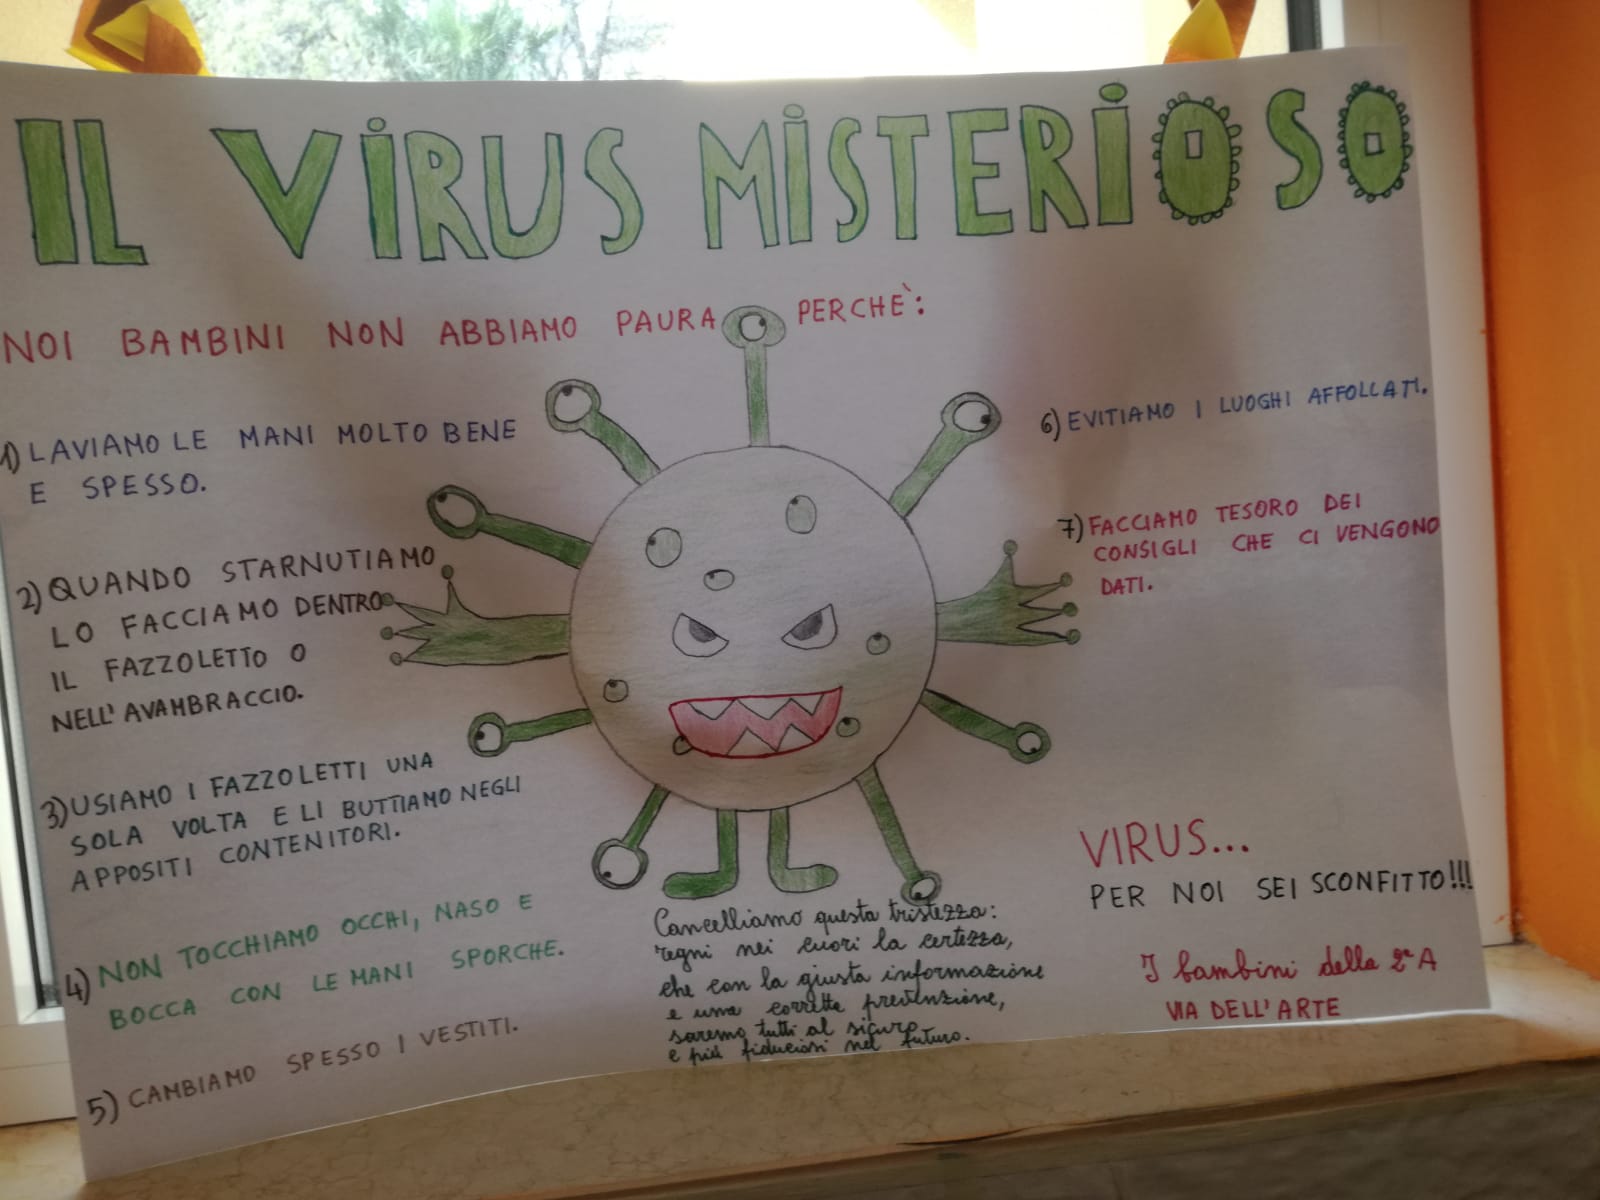 IL VIRUS MISTERIOSO
NOI BAMBINI NON ABBIAMO PAURA PERCHÈ:
1) LAVIAMO LE MANI MOLTO BENE
E SPESSO.
2) QUANDO STARNUTIAMO
LO FACCIAMO DENTRO
IL FAZZOLETTO O
NELL'AVAMBRACCIO.
3) USIAMO I FAZZOLETTI UNA
SOLA VOLTA E LI BUTTIAMO NEGLI
APPOSITI CONTENITORI.
4) NON TOCCHIAMO OCCHI, NASO E
BOCCA CON LE MANI SPORCHE.
5) CAMBIAMO SPESSO I VESTITI.
6) EVITIAMO I LUOGHI AFFOLLATI.
7) FACCIAMO TESORO DEI
CONSIGLI CHE CI VENGONO
DATI.
Cancelliamo questa tristezza:
regni nei cuori la certezza,
che con la giusta informazione
e una corretta prevenzione,
saremo tutti al sicuro
e più fiduciosi nel futuro.
VIRUS...
PER NOI SEI SCONFITTO!!!
I bambini della 2ª A
VIA DELL'ARTE